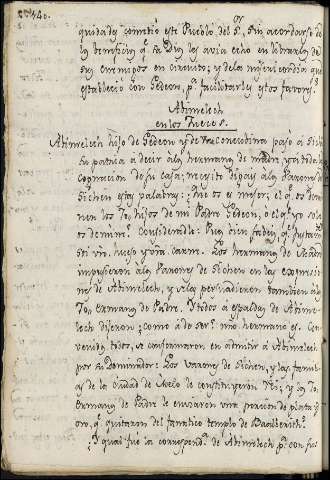 quidades cometió este Pueblo del S.or sin acordarse de
los beneficios q.e su Dios les avia echo en librarles de
sus enemigos en circuito; y de la misericordia que
estableció con Gedeon, p.a facilitarles estos favores.
Abimelech
en los Jueces.
Abimelech hijo de Gedeon y de una concubina paso a Sichen
su patria a decir a los hermanos de madre, y a toda la
cognacion de su casa;
Sichen estas palabras: Que os es mejor, el q.e os domi-
nen los 70 hijos de mi Padre Gedeon, o el q.e yo solo
os domine? Considerad: Pues bien sabeis, q.e
soi vro. hueso y vra. carne. Los hermanos de Madre
impusieron a los Varones de Sichen en las
de Abimelech, y
70 hermanos de Padre. Y todos a espaldas de Abime-
lech dijeron; como á de ser? nro hermano es. Con-
venidos todos, se conformaron en admitir a Abimelech
por su Dominador: Los Varones de Sichen, y las fami-
as de la Ciudad de Mello le constituyeron Rei; y los 70
hermanos de Padre le enviaron una porcion de plata y
oro, q.e quitaron del fanatico templo de Baalberith.
¿Y qual fué la correspond.a de Abimelech p.a con sus